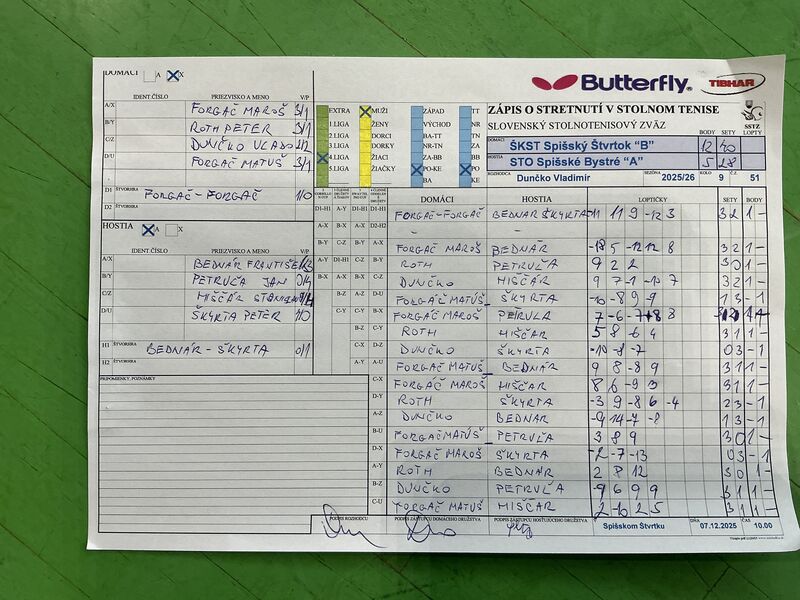 DOMÁCI A X
IDENT. ČÍSLO PRIEZVISKO A MENO V/P
A/X FORGAČ MAROŠ 3/1
B/Y ROTH PETER 3/1
C/Z DUNČKO VLADO
D/U FORGAČ MATÚŠ 3/1
D1 ŠTVORHRA FORGAČ-FORGAČ 1/0
D2
HOSTIA A X
IDENT. ČÍSLO PRIEZVISKO A MENO V/P
A/X BEDNÁR FRANTIŠEK
B/Y PETRUĽA JÁN 0/4
C/Z HIŠČÁR STANISLAV
D/U ŠKYRTA PETER
H1 ŠTVORHRA BEDNÁR-ŠKYRTA 0/1
H2
PRIPOMIENKY, POZNÁMKY
Butterfly TIBHAR
EXTRA MUŽI ZÁPAD TT
1.LIGA ŽENY VÝCHOD NR-TN
2.LIGA DORCI BA-TT TN
3.LIGA DORKY NR-TN ZA
4.LIGA ŽIACI ZA-BB BB
5.LIGA ŽIAČKY PO-KE PO
BA KE
ZÁPIS O STRETNUTÍ V STOLNOM TENISE
SLOVENSKÝ STOLNOTENISOVÝ ZVÄZ
SSTZ
BODY SETY LOPTY
DOMÁCI ŠKST Spišský Štvrtok "B" 12 40
HOSTIA STO Spišské Bystré "A" 5 28
ROZHODCA Dunčko Vladimír SEZÓNA 2025/26 KOLO 9 Č.Z. 51
DOMÁCI HOSTIA LOPTIČKY SETY BODY
D1-H1 A-Y A-X D1-H1 FORGAČ-FORGAČ BEDNÁR ŠKYRTA -11 11 9 -12 3 3 2 1 -
A-X B-X A-X D2-H2 - -
B-Y C-Z B-Y A-X FORGAČ MAROŠ BEDNÁR -18 5 -12 12 8 3 2 1 -
A-Y D1-H1 C-Z B-Y ROTH PETRUĽA 9 2 2 3 0 1 -
B-X A-X B-X C-Z DUNČKO HIŠČÁR 9 -7 -1 -10 7 3 2 1 -
B-Z A-Z D-U FORGAČ MATÚŠ ŠKYRTA -10 -8 9 -9 1 3 - 1
C-Y C-Y B-X FORGAČ MAROŠ PETRUĽA
B-Z C-Y ROTH HIŠČÁR 5 8 6 4 3 1 1 -
C-X D-Z DUNČKO ŠKYRTA -10 -8 -7 0 3 - 1
A-Y A-U FORGAČ MATÚŠ BEDNÁR 9 8 -8 9 3 1 1 -
C-X FORGAČ MAROŠ HIŠČÁR 8 6 -9 3 3 1 1 -
D-Y ROTH ŠKYRTA -3 9 -8 6 -4 2 3 - 1
A-Z DUNČKO BEDNÁR -9 14 -7 -8 1 3 - 1
B-U FORGAČ MATÚŠ PETRUĽA 3 8 9 3 0 1 -
D-X FORGAČ MAROŠ ŠKYRTA -2 -7 -13 0 3 - 1
A-Y ROTH BEDNÁR 2 8 12 3 0 1 -
B-Z DUNČKO PETRUĽA -9 6 9 9 3 1 1 -
C-U FORGAČ MATÚŠ HIŠČÁR 2 -10 2 5 3 1 1 -
PODPIS ROZHODCU PODPIS ZÁSTUPCU DOMÁCEHO DRUŽSTVA PODPIS ZÁSTUPCU HOSŤUJÚCEHO DRUŽSTVA V Spišskom Štvrtku DŇA 07.12.2025 ČAS 10.00